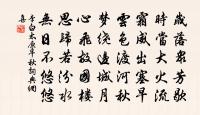 歲落衆芳歇
時當大火流
霜威出塞早
雲色渡河秋
夢繞邊城月
心飛故國樓
思歸若汾水
無日不悠悠
李白太原早秋詞典網